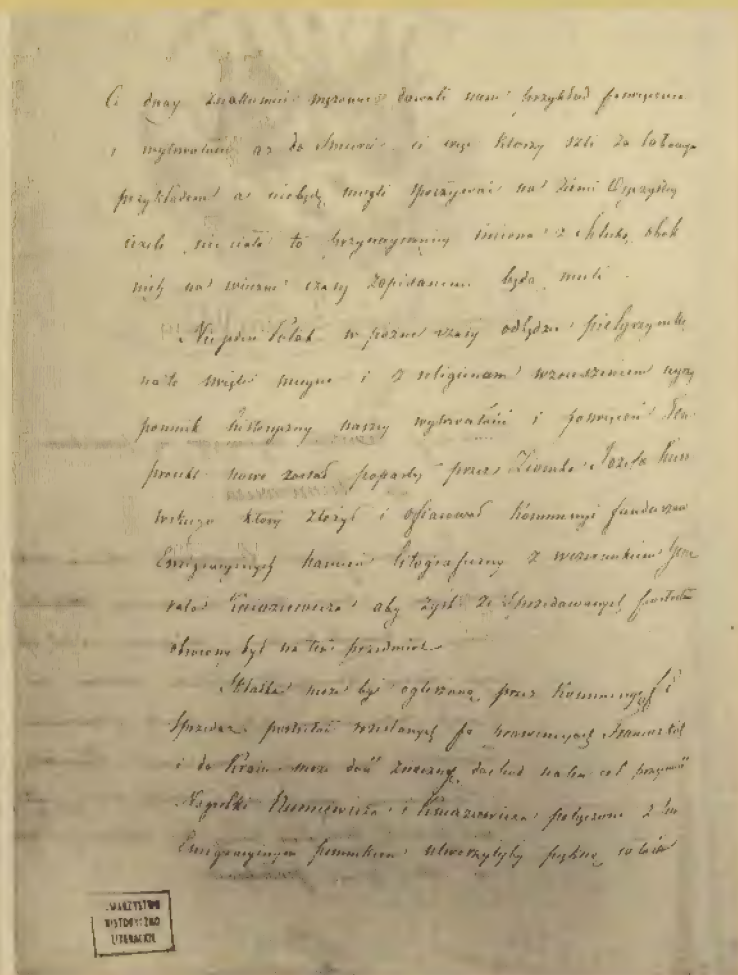 Ci dwaj znakomici mężowie dawali nam przykład poświęcenia
i wytrwałości aż do śmierci, ci więc którzy szli za takowym
przykładem a niebędą mogli spoczywać na ziemi Ojczystej
jeżeli nie ciała to przynajmniej imiona z chlubą obok
nich na wieczne czasy zapisanemi będą mieli.
Niejeden Polak w późne czasy odbędzie pielgrzymkę
na to święte miejsce i z religijnem wzruszeniem ujrzy
pomnik historyczny naszej wytrwałości i poświęceń Ten
projekt nowo został poparty przez Ziomka Józefa
który złożył i ofiarował Kommissyi funduszów
Emigracyjnych kamień litograficzny z wizerunkiem Jene
rała Kniaziewicza aby zysk ze sprzedawanych portretów
obrócony był na ten przedmiot.
Składka może być ogłoszoną przez Kommissyą i
sprzedaż portretów rozesłanych po prowincyach Francuzkich
i do Kraju może dać znaczny dochód na ten cel
Nagrobki Niemcewicza i Kniaziewicza połączone z tem
Emigracyjnym pomnikiem utworzyłyby piękną całość
TOWARZYSTWO
HISTORYCZNO
LITERACKIE